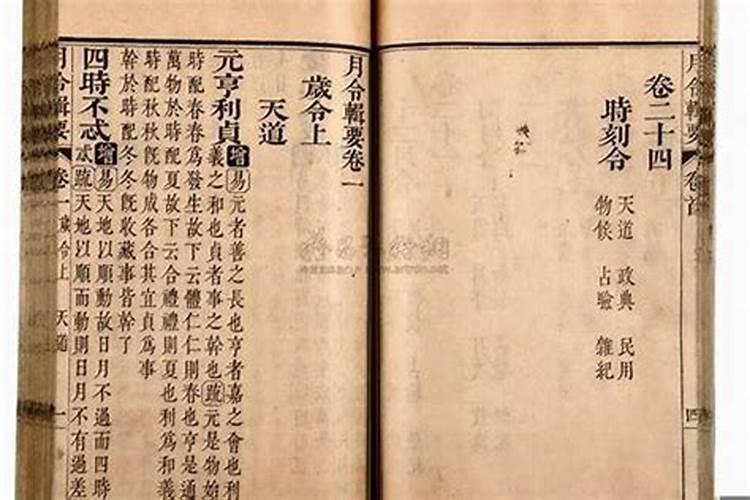 月令輯要 卷首 四
卷二十四
時刻令
天道 政典 民用
物候 占驗 雜紀
月令輯要卷一
歲令上
天道
元亨利貞 增 易 元者善之長也亨者嘉之會也利
義之和也貞者事之幹也 疏 元是物始
時配春春為發生故下云體仁仁則春也亨是通
萬物於時配夏故下云合禮禮則夏也利為和義
時配秋秋既物成各合其宜貞為事
幹於時配冬冬既收藏事皆幹了
四時不忒 增 易 天地以順動故日月不過而四時
忒 疏 天地以順而動則日月不有過差
月令輯要 卷一 歲令上 天道 一